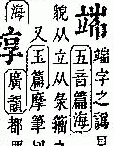 端字之譌
五音篇海
貌从立从
又玉篇摩筆
海
廣韻都